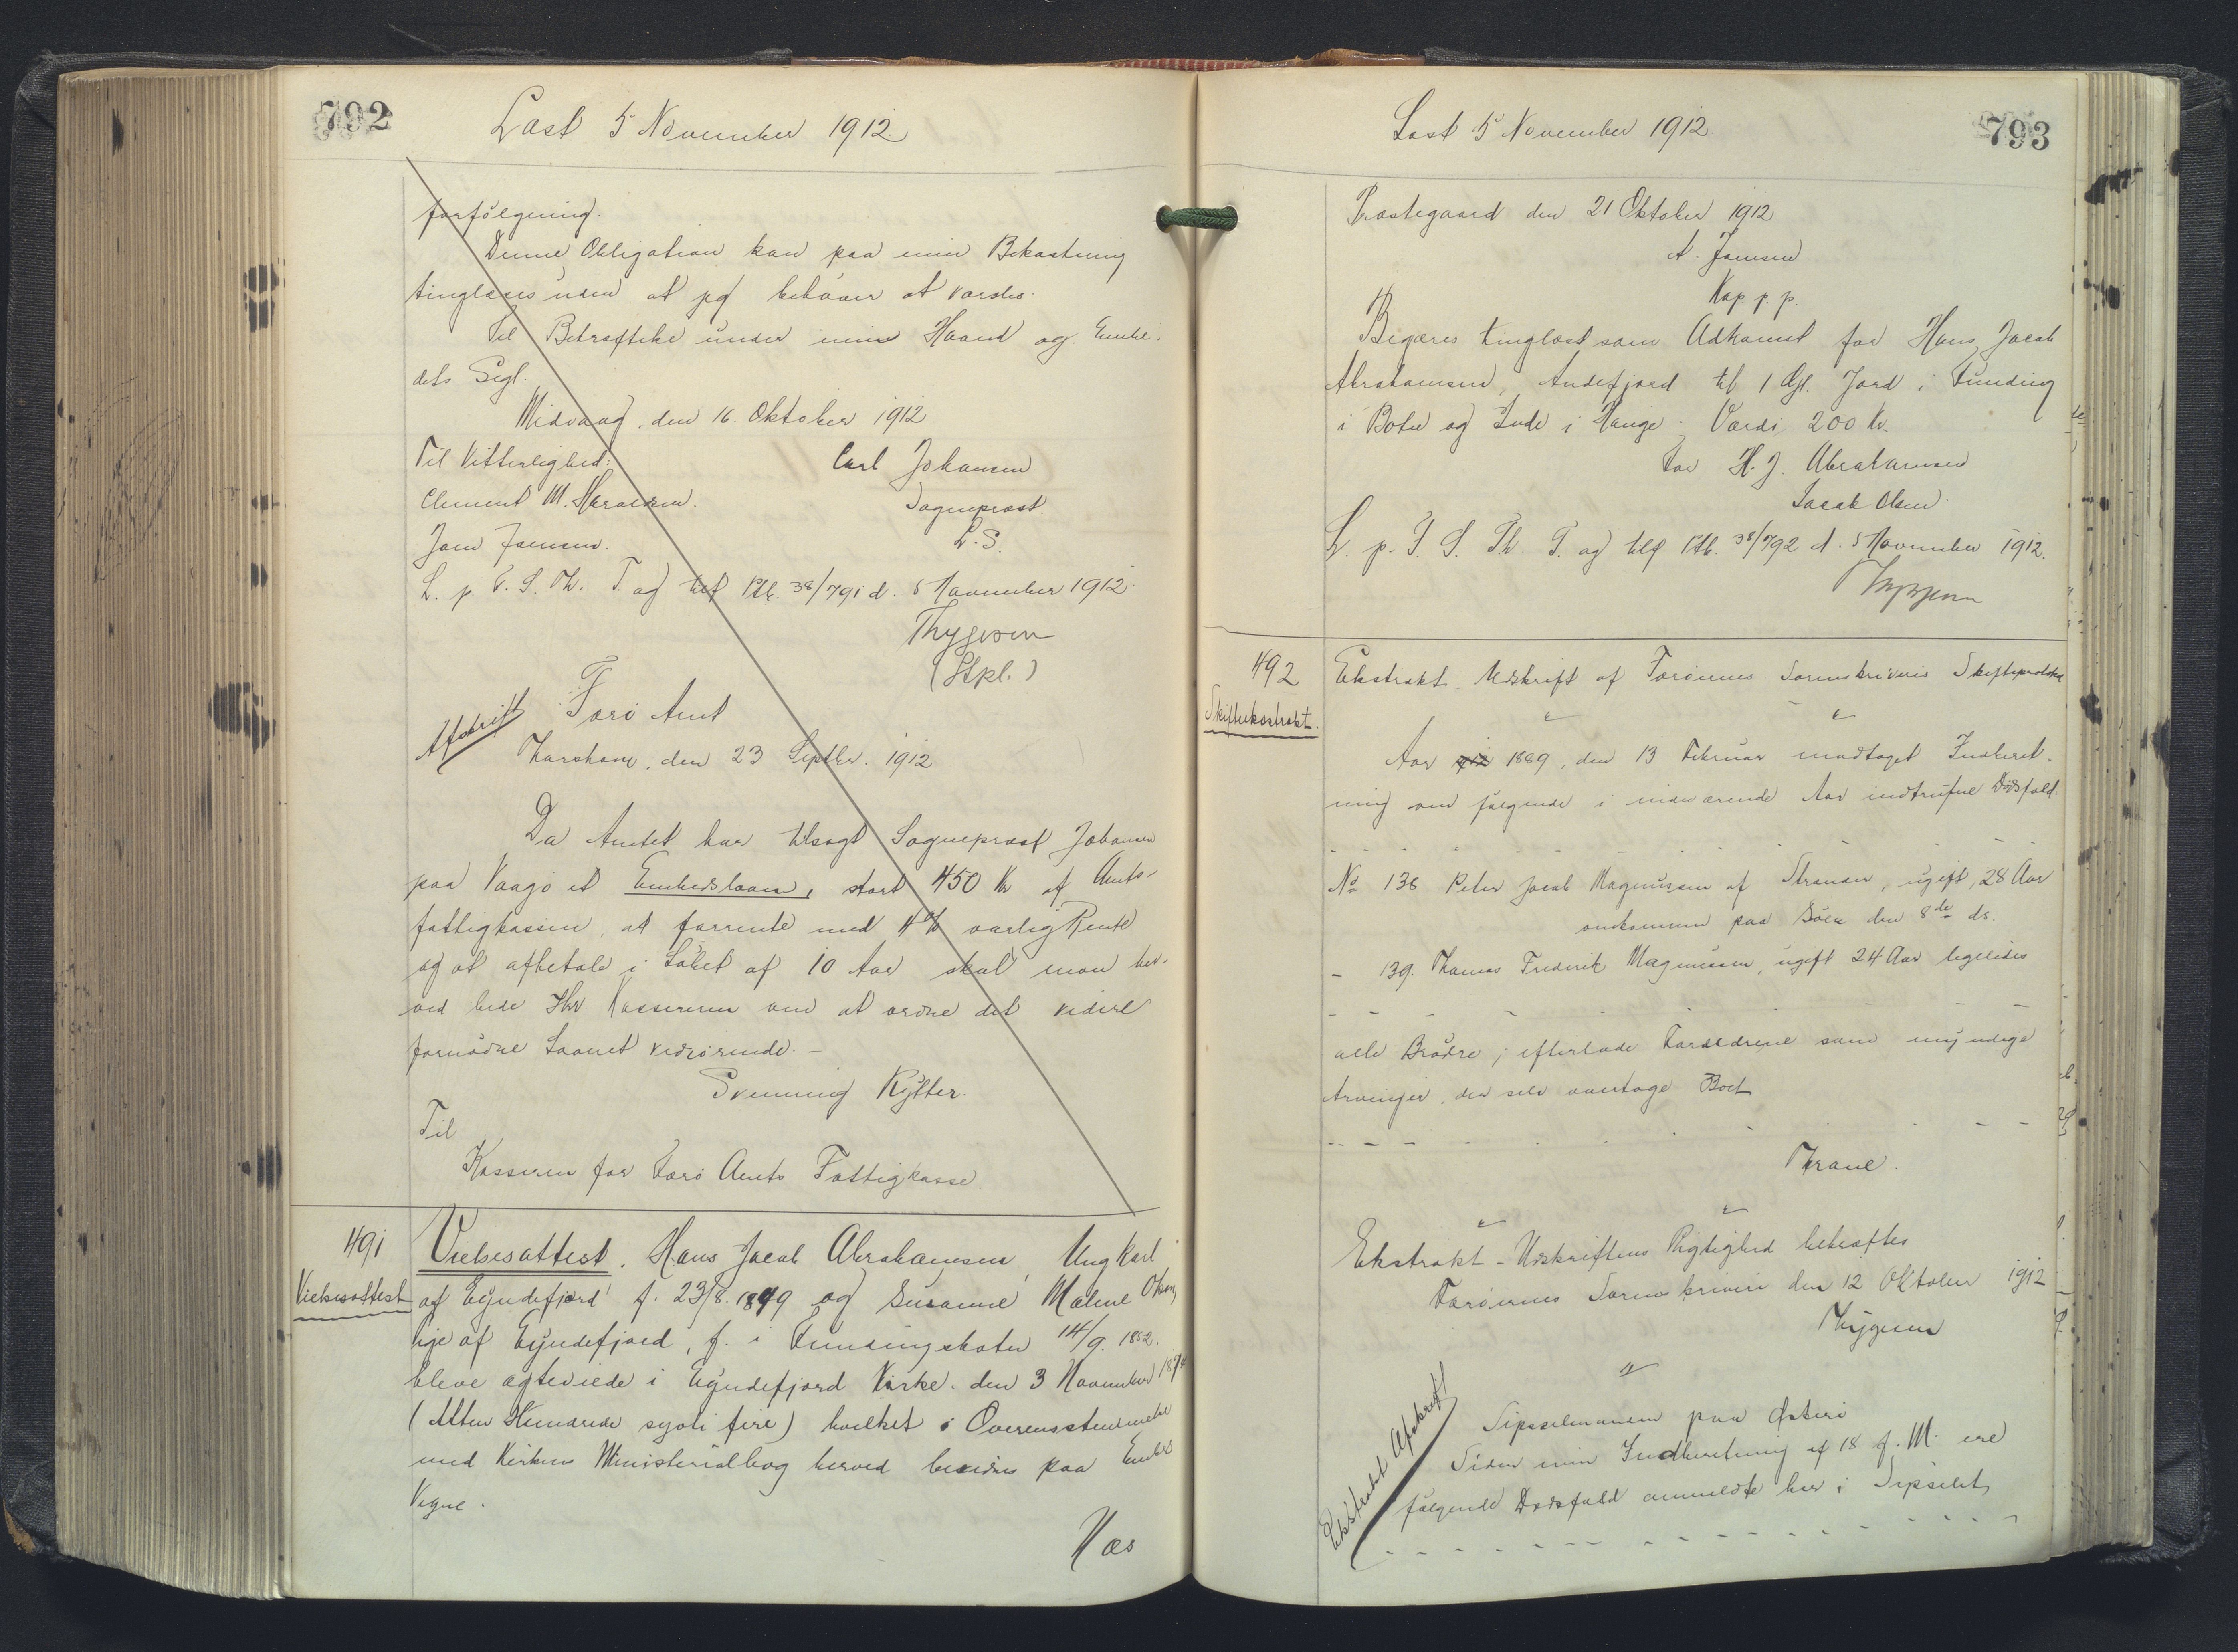 792
Læst 5 November 1912.
forfölgning.
Denne Obligation kan paa min Bekostning
tinglæses uden at jeg behöver at varsles.
Til Bekræftelse under min Haand og Embe-
dets Segl.
Midvaag, den 16. Oktober 1912
Til Vitterlighed:
Carl Johansen
Clement M. Haraldsen.
Sognepræst.
Joen Joensen.
L.S.
L. p. F. S. Th. T. og tilf Ptb. 38/791 d. 5 November 1912.
Thygesen
(Stpl.)
Afskrift
Færö Amt
Thorshavn, den 23 Septbr. 1912
Da Amtet har tilsagt Sognepræst Johansen
paa Vaagö et Embedslaan, stort 450 Kr af Amts-
fattigkassen, at forrente med 4% aarlig Rente
og at afbetale i Löbet af 10 Aar skal man her-
ved bede Hr Kassereren om at ordne det videre
fornödne Laanet vedrörende. —
Svenning Rytter.
Til
Kasseren for Færö Amts Fattigkasse.
491
Vielsesattest
Vielsesattest. Hans Jacob Abrahamsen, Ungkarl
af Ejndefjord f. 23/8. 1849 og Susanne Malene Olsen,
Pige af Ejndefjord, f. i Fundingsbotn 14/9. 1852.
bleve ægteviede i Ejndefjord Kirke. den 3 November 1874
(Atten Hundrede syoti fire) hvilket i Overensstemmelse
med Kirkens Ministerialbog herved bevidnes paa Embeds
Vegne.
Næs
793
Læst 5 November 1912.
Præstegaard den 21 Oktober 1912
A. Joensen
Kap p. p.
Begæres tinglæst som Adkomst for Hans Jacob
Abrahamsen, Andefjord til 1 Gl. Jord i Funding
i Botn og Inde i Hauge. Værdi 200 Kr.
For H. J. Abrahamsen
Jacob Olsen.
L. p. F. S. Th T. og tilf Ptb. 38/792 d. 5 November 1912.
Thygesen
492
Skifteekstrakt.
Ekstrakt Udskrift af Færöernes Sorenskriveris Skifteprotokol
Aar 1889, den 13 Februar modtaget Indberet-
ning om fölgende i nærværende Aar indtrufne Dödsfald.
No 138 Peter Jacob Magnussen af Strender, ugift, 28 Aar
omkommen paa Söen den 8de ds.
- 139. Thomas Frederik Magnussen, ugift 24 Aar ligeledes
alle Brödre; efterlode Forældrene som myndige
Arvinger, der selv overtoge Boet
Thrane.
Ekstrakt-Udskriftens Rigtighed bekræftes
Færöernes Sorenskriveri den 12 Oktober 1912
Thygesen
Ekstrakt Afskrift
Sysselmanden paa Österö
Siden min Indberetning af 18 f. M. ere
fölgende Dödsfald anmeldte her i Sysselet